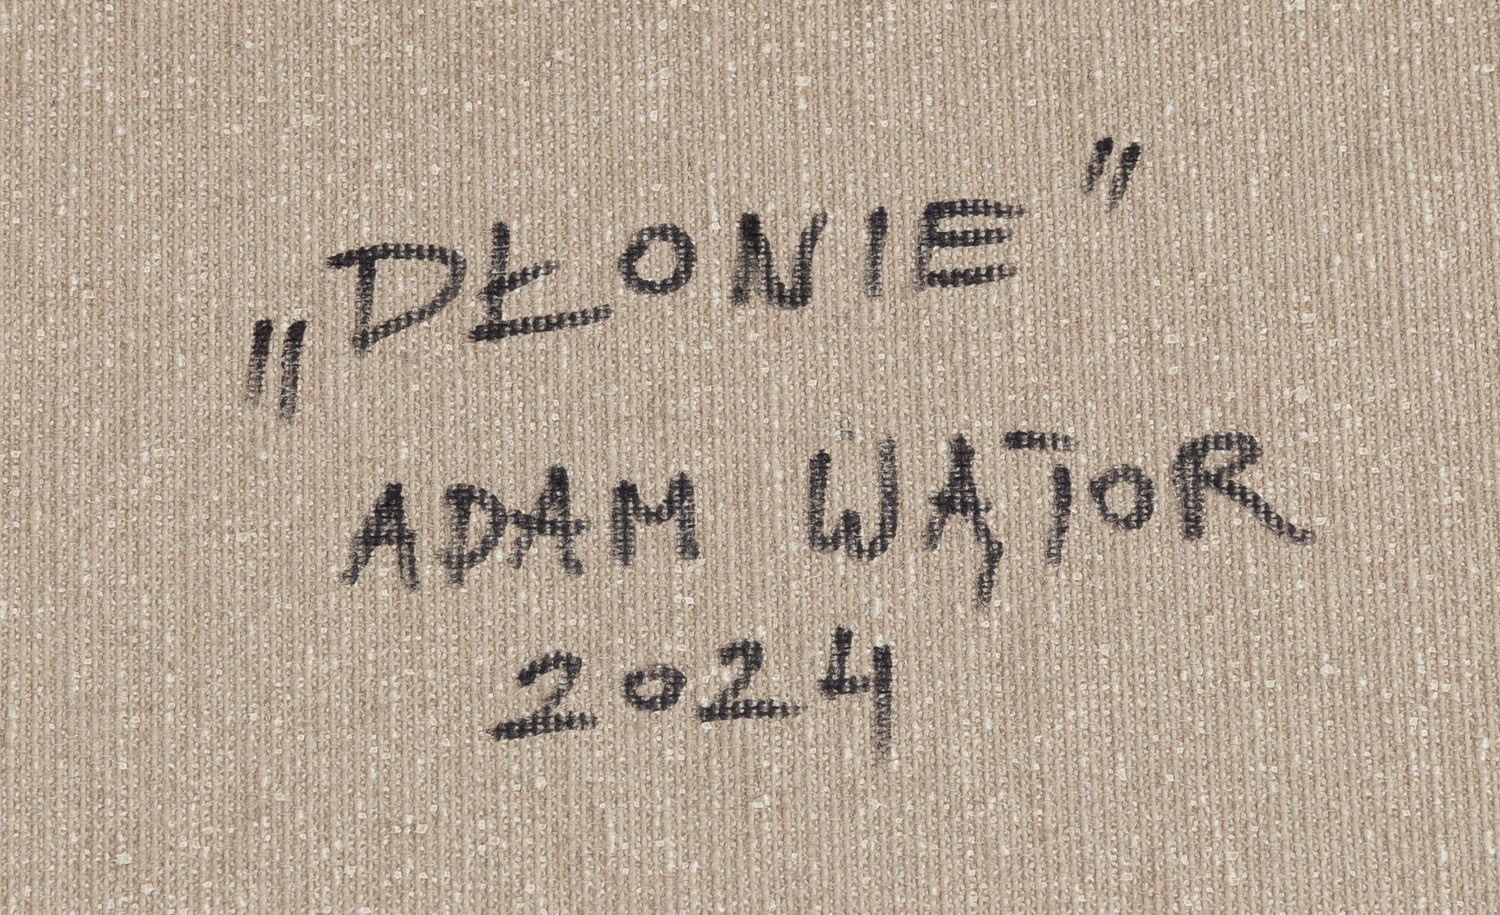 „DŁONIE”
ADAM WĄTOR
2024